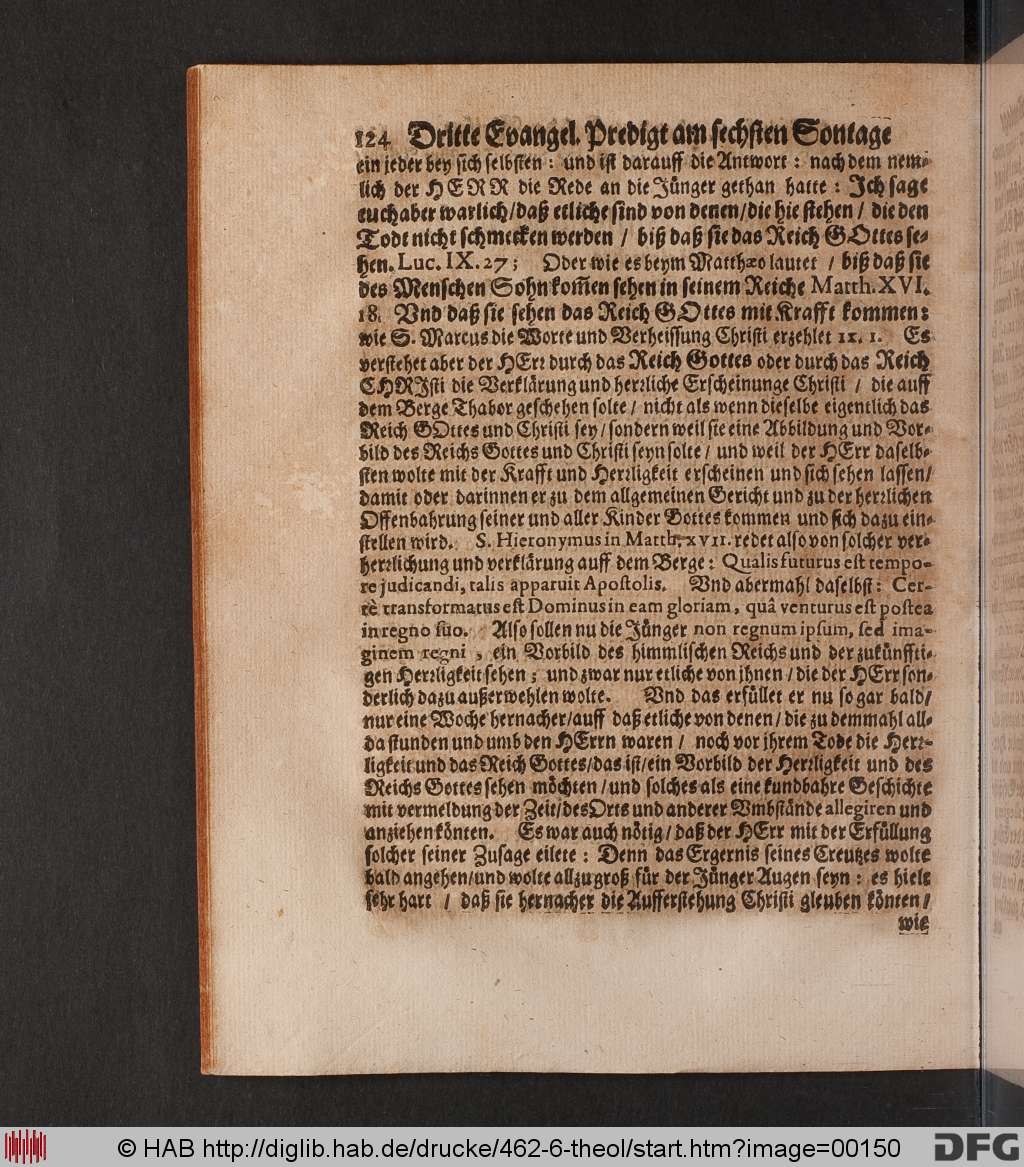 124 Dritte Evangel. Predigt am sechsten Sontage
ein jeder bey sich selbsten: und ist darauff die Antwort: nach dem nem-
lich der HERR die Rede an die Jünger gethan hatte: Ich sage
euch aber warlich/daß etliche sind von denen/die hie stehen/ die den
Todt nicht schmecken werden / biß daß sie das Reich GOttes se-
hen. Luc. IX. 27; Oder wie es beym Matthæo lautet / biß daß sie
des Menschen Sohn kom̃en sehen in seinem Reiche Matth. XVI.
18. Vnd daß sie sehen das Reich GOttes mit Krafft kommen:
wie S. Marcus die Worte und Verheissung Christi erzehlet IX. 1. Es
verstehet aber der HErr durch das Reich Gottes oder durch das Reich
CHRJsti die Verklärung und herrliche Erscheinunge Christi / die auff
dem Berge Thabor geschehen solte / nicht als wenn dieselbe eigentlich das
Reich GOttes und Christi sey/sondern weil sie eine Abbildung und Vor-
bild des Reichs Gottes und Christi seyn solte / und weil der HErr daselb-
sten wolte mit der Krafft und Herrligkeit erscheinen und sich sehen lassen/
damit oder darinnen er zu dem allgemeinen Gericht und zu der herrlichen
Offenbahrung seiner und aller Kinder Gottes kommen und sich dazu ein-
stellen wird. S. Hieronymus in Matth. XVII. redet also von solcher ver-
herrlichung und verklärung auff dem Berge: Qualis futurus est tempo-
re judicandi, talis apparuit Apostolis. Vnd abermahl daselbst: Cer-
tè transformatus est Dominus in eam gloriam, quâ venturus est postea
in regno suo. Also sollen nu die Jünger non regnum ipsum, sed ima-
ginem regni, ein Vorbild des himmlischen Reichs und der zukünffti-
gen Herrligkeit sehen; und zwar nur etliche von jhnen / die der HErr son-
derlich dazu außerwehlen wolte. Vnd das erfüllet er nu so gar bald/
nur eine Woche hernacher/auff daß etliche von denen / die zu demmahl all-
da stunden und umb den HErrn waren / noch vor jhrem Tode die Herr-
ligkeit und das Reich Gottes/das ist/ein Vorbild der Herrligkeit und des
Reichs Gottes sehen möchten / und solches als eine kundbahre Geschichte
mit vermeldung der Zeit/des Orts und anderer Vmbstände allegiren und
anziehen könten. Es war auch nötig / daß der HErr mit der Erfüllung
solcher seiner Zusage eilete: Denn das Ergernis seines Creutzes wolte
bald angehen/und wolte allzu groß für der Jünger Augen seyn: es hielt
sehr hart / daß sie hernacher die Aufferstehung Christi gleuben könten/
wie
© HAB http://diglib.hab.de/drucke/462-6-theol/start.htm?image=00150
DFG